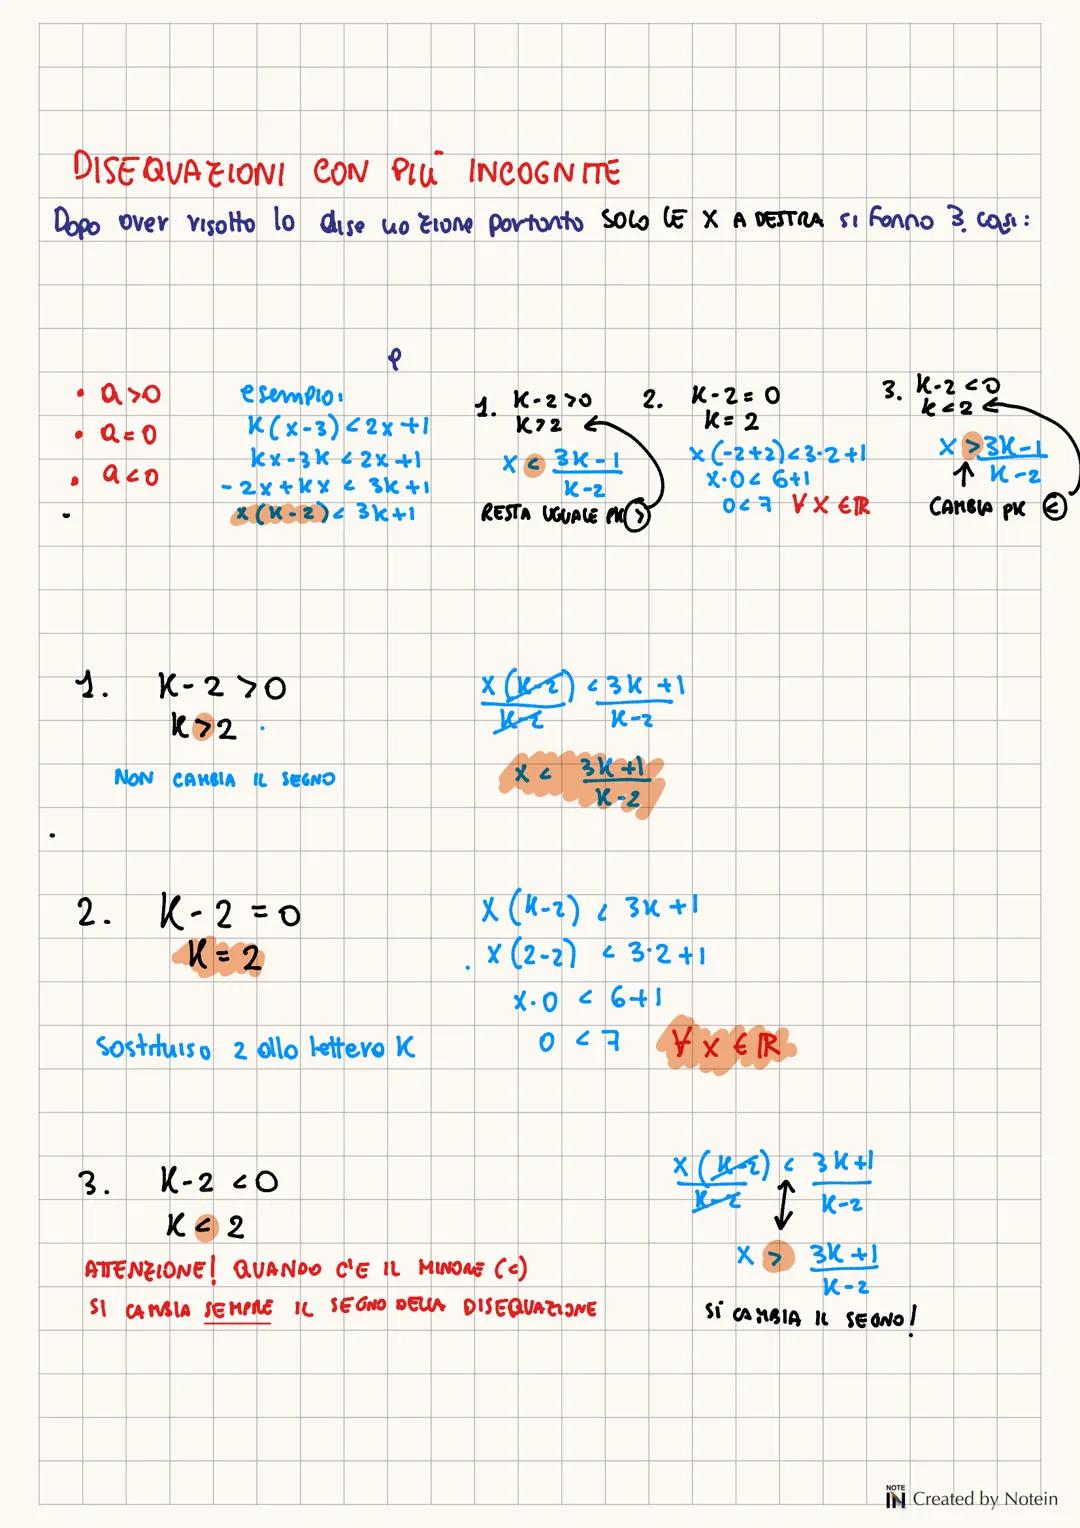 DISEQUAZIONI CON PIÙ INCOGNITE
Dopo aver risolto la disequazione portanto SOLO LE X A DESTRA si fanno 3 casi:
• a>0
• a=0
• a<0
esempio:
K(x-3)<2x+1
Kx-3K<2x+1
-2x+Kx<3K+1
x(K-2)<3K+1
1. K-2>0
K>2
x < 3K-1
K-2
RESTA UGUALE PK >
2. K-2=0
K=2
x(-2+2)<3·2+1
x·0<6+1
0<7 ∀x∈ℝ
3. K-2<0
K<2
x > 3K-1
K-2
CAMBIA PK <
1. K-2>0
K>2
NON CAMBIA IL SEGNO
x(K-2) < 3K+1
K-2 K-2
x < 3K+1
K-2
2. K-2=0
K=2
Sostituiso 2 alla lettera K
x(K-2) < 3K+1
x(2-2) < 3·2+1
x·0 < 6+1
0<7 ∀x∈ℝ
3. K-2<0
K<2
ATTENZIONE! QUANDO C'E IL MINORE (<)
SI CAMBIA SEMPRE IL SEGNO DELLA DISEQUAZIONE
x(K-2) < 3K+1
K-2 K-2
x > 3K+1
K-2
SI CAMBIA IL SEGNO!
NOTE IN Created by Notein